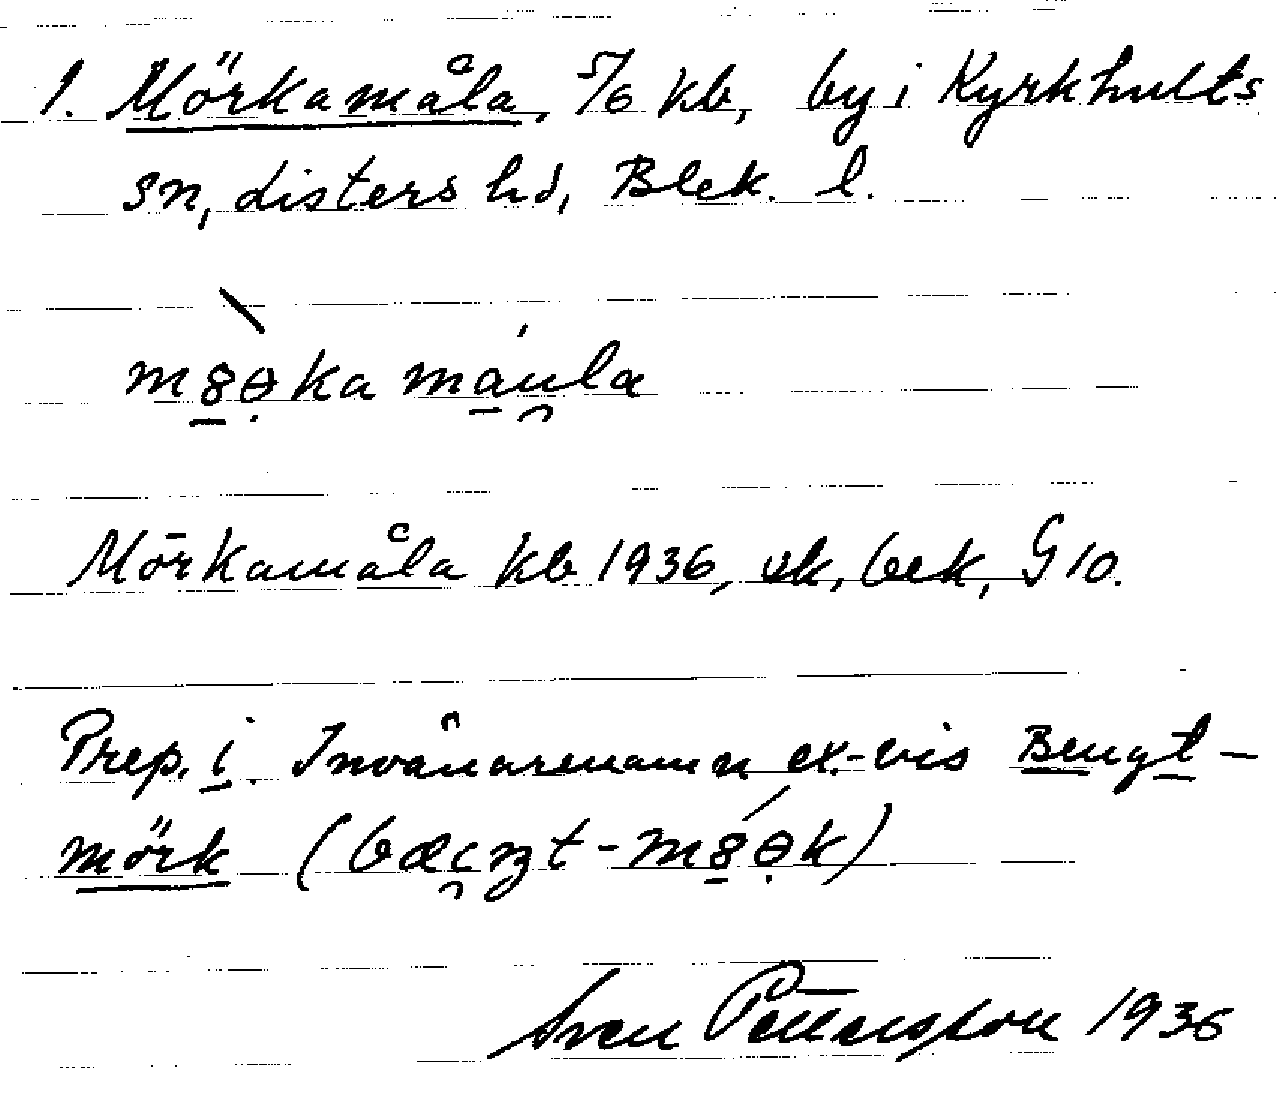 1. Mörkamåla, 5/6 kb, by i Kyrkhults
sn, Listers hd, Blek. l.
m8ɵ̣ka mau̯la
Mörkamåla kb 1936, ek, bek, G 10.
Prep. i. Invånarenamn ex.-vis Bengt-
mörk (bæi̯ŋt-m8ɵ̣k)
Sven Pettersson 1936